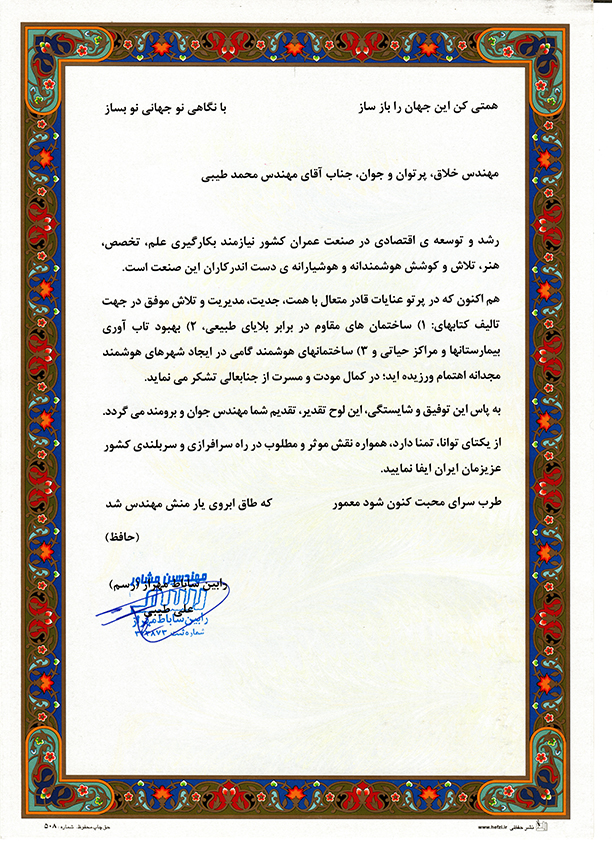 همتی کن این جهان را باز ساز با نگاهی نو جهانی نو بساز
مهندس خلاق، پرتوان و جوان، جناب آقای مهندس محمد طیبی
رشد و توسعه ی اقتصادی در صنعت عمران کشور نیازمند بکارگیری علم، تخصص،
هنر، تلاش و کوشش هوشمندانه و هوشیارانه ی دست اندرکاران این صنعت است.
هم اکنون که در پرتو عنایات قادر متعال با همت، جدیت، مدیریت و تلاش موفق در جهت
تالیف کتابهای: ۱) ساختمان های مقاوم در برابر بلایای طبیعی، ۲) بهبود تاب آوری
بیمارستانها و مراکز حیاتی و ۳) ساختمانهای هوشمند گامی در ایجاد شهرهای هوشمند
مجدانه اهتمام ورزیده اید؛ در کمال مودت و مسرت از جنابعالی تشکر می نماید.
به پاس این توفیق و شایستگی، این لوح تقدیر، تقدیم شما مهندس جوان و برومند می گردد.
از یکتای توانا، تمنا دارد، همواره نقش موثر و مطلوب در راه سرافرازی و سربلندی کشور
عزیزمان ایران ایفا نمایید.
طرب سرای محبت کنون شود معمور که طاق ابروی یار منش مهندس شد
(حافظ)
مهندسین مشاور
رابین ساباط مهراز (رسم)
علی طیبی
رابین ساباط مهراز
شماره ثبت
نشر حفظی www.hefzi.ir
حق چاپ محفوظ شماره: ۵۰۸